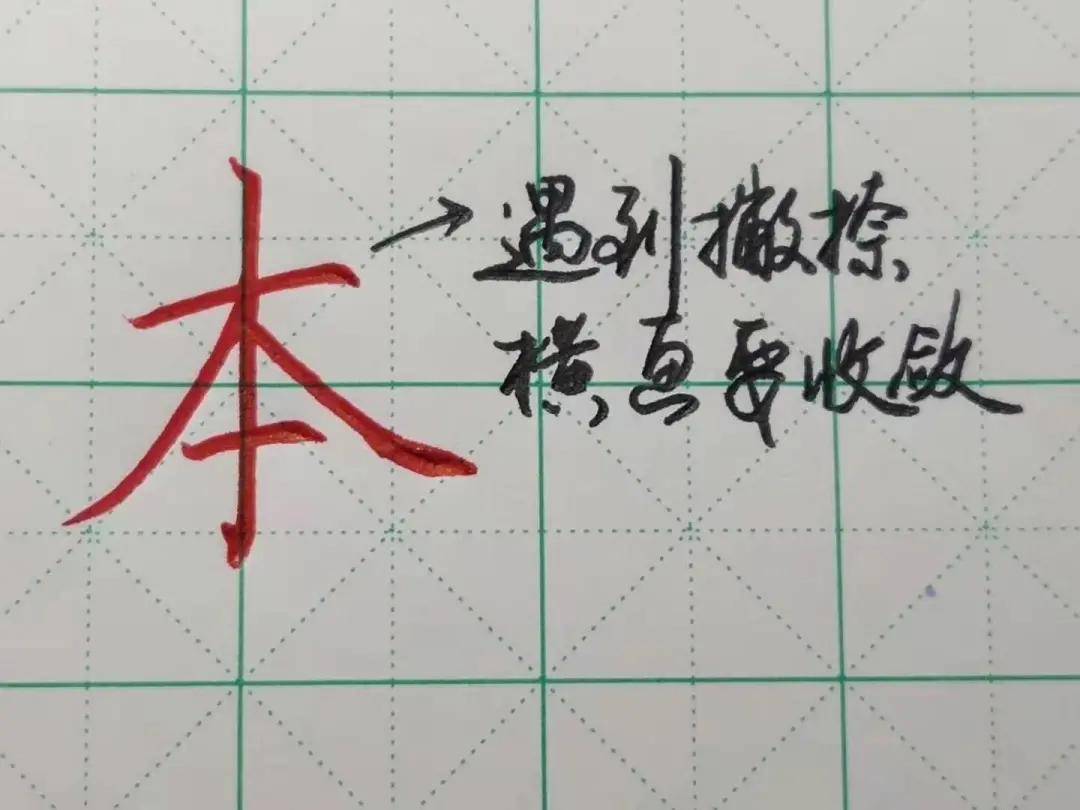 本
→遇到撇捺,
横画要收敛